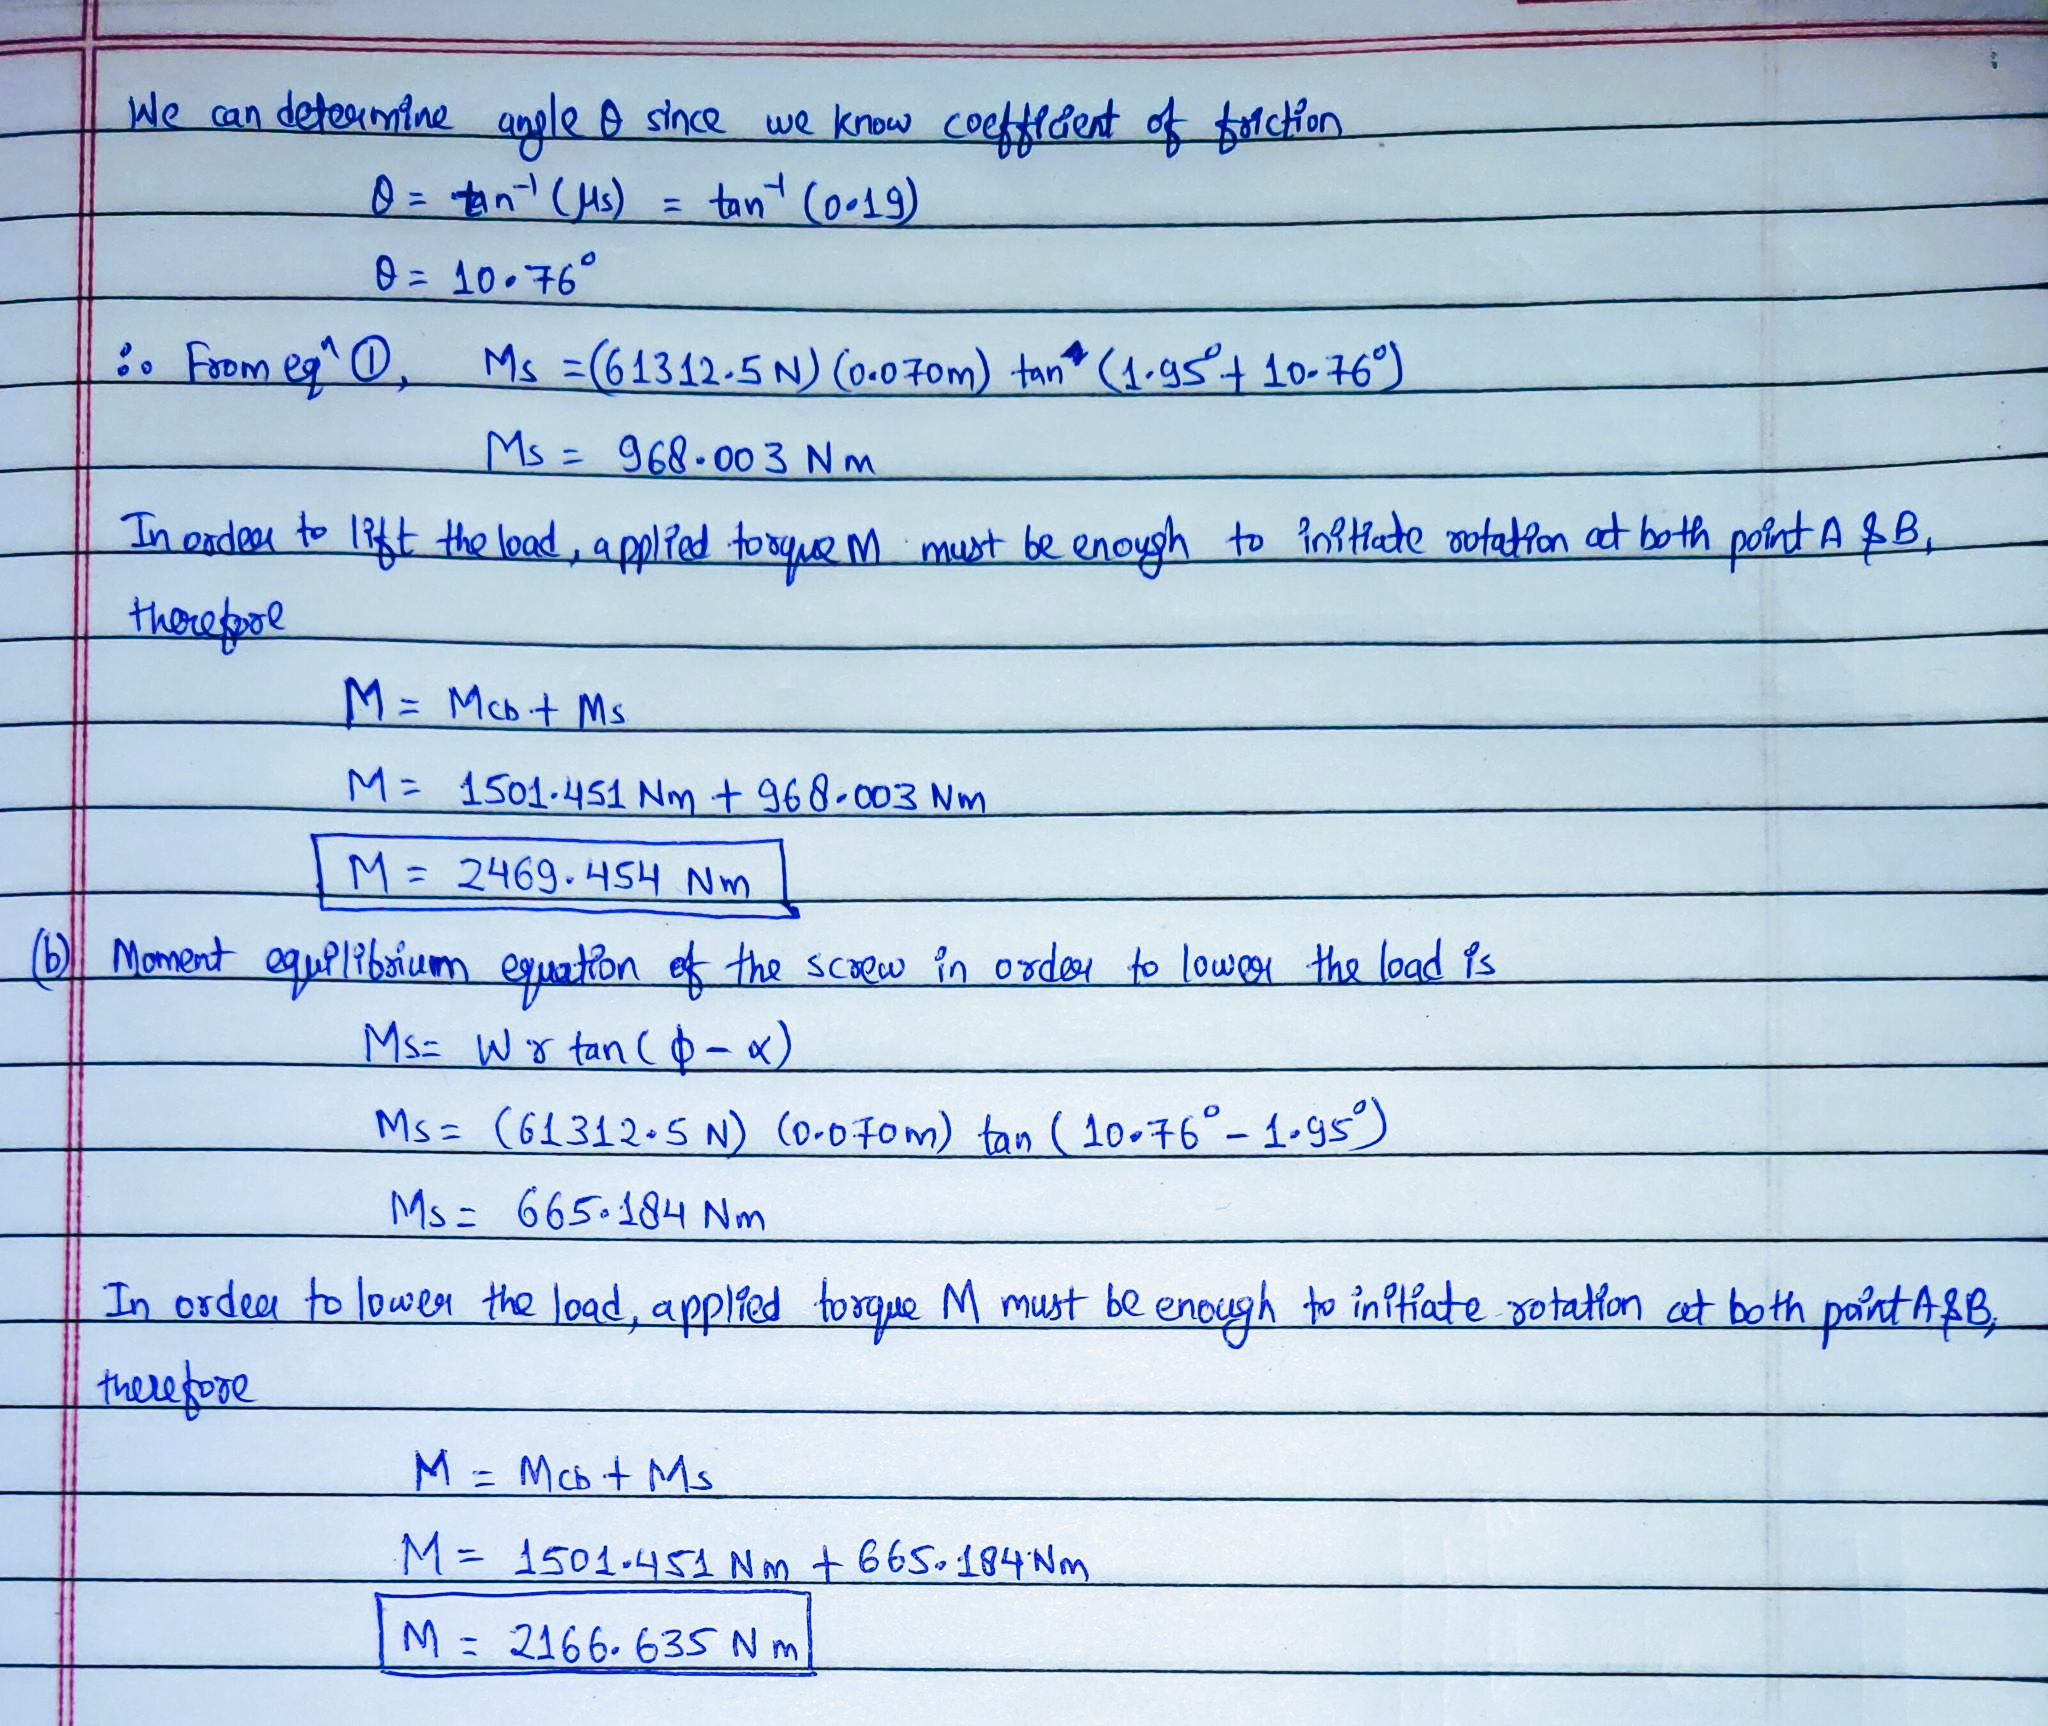 We can determine angle θ since we know coefficient of friction
θ = tan⁻¹ (μs) = tan⁻¹ (0.19)
θ = 10.76°
∴ From eqⁿ ①, Ms = (61312.5 N) (0.070m) tan (1.95° + 10.76°)
Ms = 968.003 Nm
In order to lift the load, applied torque M must be enough to initiate rotation at both point A & B,
therefore
M = Mcb + Ms
M = 1501.451 Nm + 968.003 Nm
M = 2469.454 Nm
(b) Moment equilibrium equation of the screw in order to lower the load is
Ms = W r tan (ϕ - α)
Ms = (61312.5 N) (0.070m) tan (10.76° - 1.95°)
Ms = 665.184 Nm
In order to lower the load, applied torque M must be enough to initiate rotation at both point A & B,
therefore
M = Mcb + Ms
M = 1501.451 Nm + 665.184 Nm
M = 2166.635 Nm